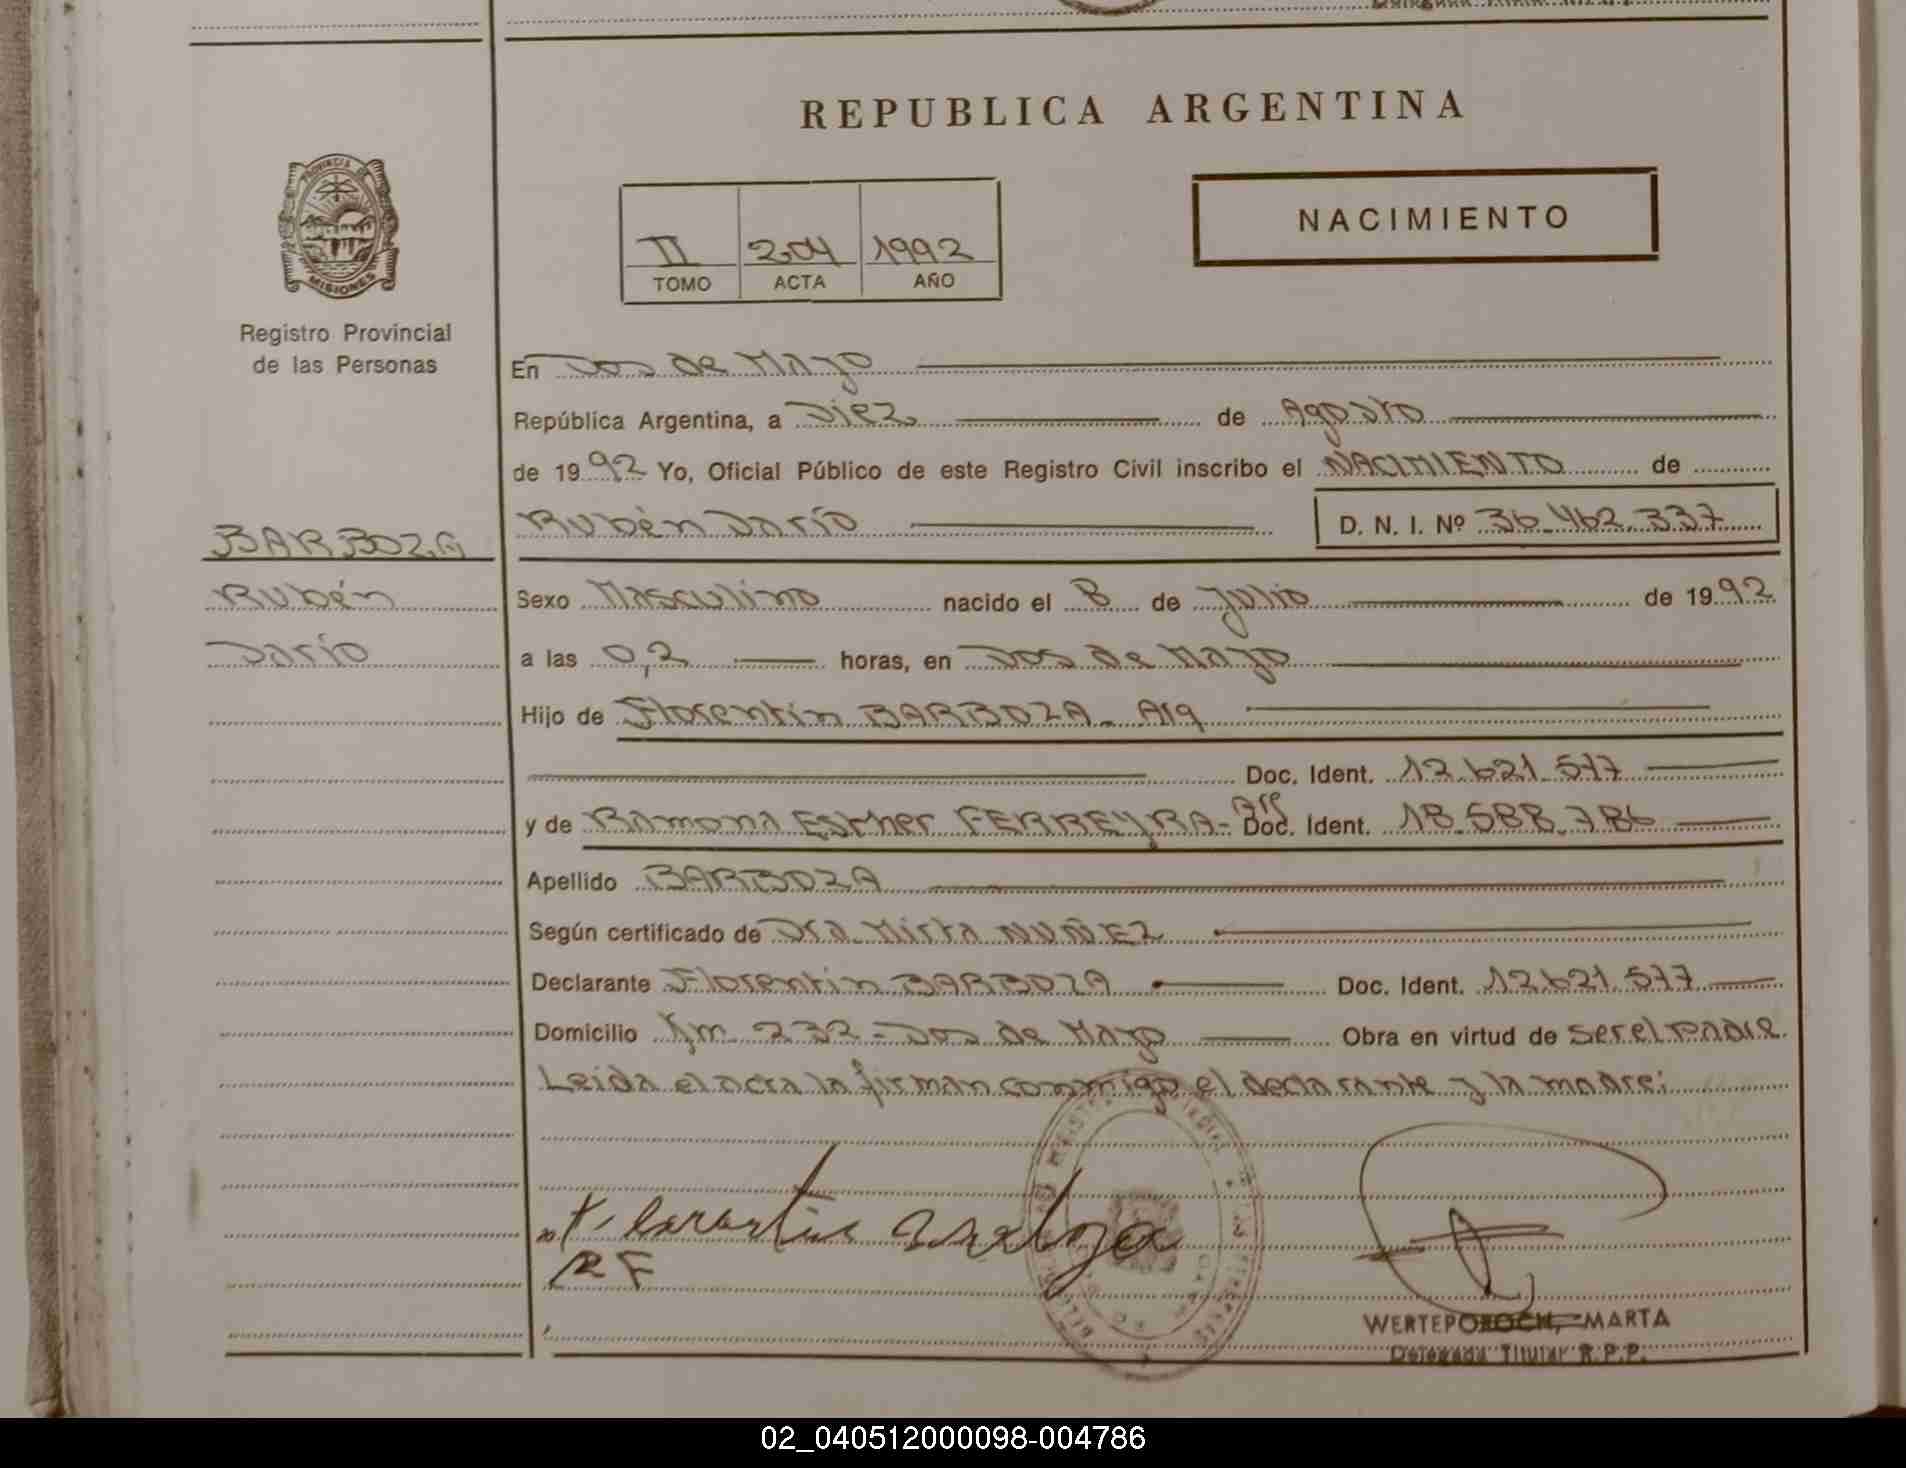 REPUBLICA ARGENTINA
PROVINCIA DE
MISIONES
Registro Provincial
de las Personas
II 204 1992
TOMO ACTA AÑO
NACIMIENTO
En Dos de Mayo
República Argentina, a Diez de Agosto
de 1992 Yo, Oficial Público de este Registro Civil inscribo el NACIMIENTO de
BARBOZA
Rubén Darío D. N. I. Nº 36.462.337
Rubén
Sexo Masculino nacido el 8 de Julio de 1992
Darío
a las 0,2 horas, en Dos de Mayo
Hijo de Florentín BARBOZA - Arg
Doc. Ident. 12.621.577
y de Ramona Esther FERREYRA - Arg Doc. Ident. 18.588.786
Apellido BARBOZA
Según certificado de Dra. Mirta NUÑEZ
Declarante Florentín BARBOZA Doc. Ident. 12.621.577
Domicilio Km. 232 - Dos de Mayo Obra en virtud de ser el padre.
Leida el acta la firman conmigo el declarante y la madre:
RF
WERTEPOROCH, MARTA
Delegada Titular R.P.P.
02_040512000098-004786